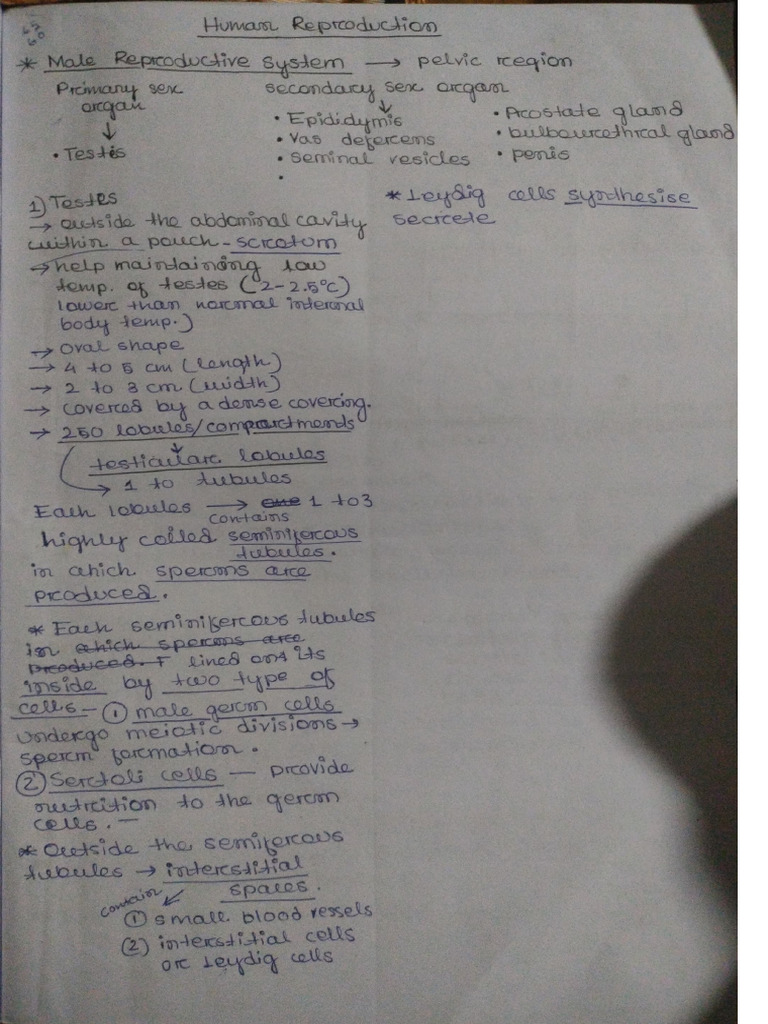 Human Reproduction
* Male Reproductive system → pelvic region
Primary sex organ
↓
• Testis
secondary sex organ
↓
• Epididymis
• Vas deferens
• Seminal vesicles
•
• Prostate gland
• bulbourethral gland
• penis
1) Testes
→ outside the abdominal cavity
within a pouch - scrotum
→ help maintaining low
temp. of testes (2-2.5°c)
lower than normal internal
body temp.)
→ oval shape
→ 4 to 5 cm (length)
→ 2 to 3 cm (width)
→ covered by a dense covering.
→ 250 lobules/compartments
↓
testicular lobules
→ 1 to tubules
Each lobules → one 1 to 3
contains
highly coiled seminiferous
tubules.
in which sperms are
produced.
* Each seminiferous tubules
in which sperms are
produced. T lined on its
inside by two type of
cells - ① male germ cells
undergo meiotic divisions →
sperm formation.
② Sertoli cells — provide
nutrition to the germ
cells. —
* Outside the semiferous
tubules → interstitial
spaces.
contain
① small blood vessels
② interstitial cells
or Leydig cells
* Leydig cells synthesise
secrete